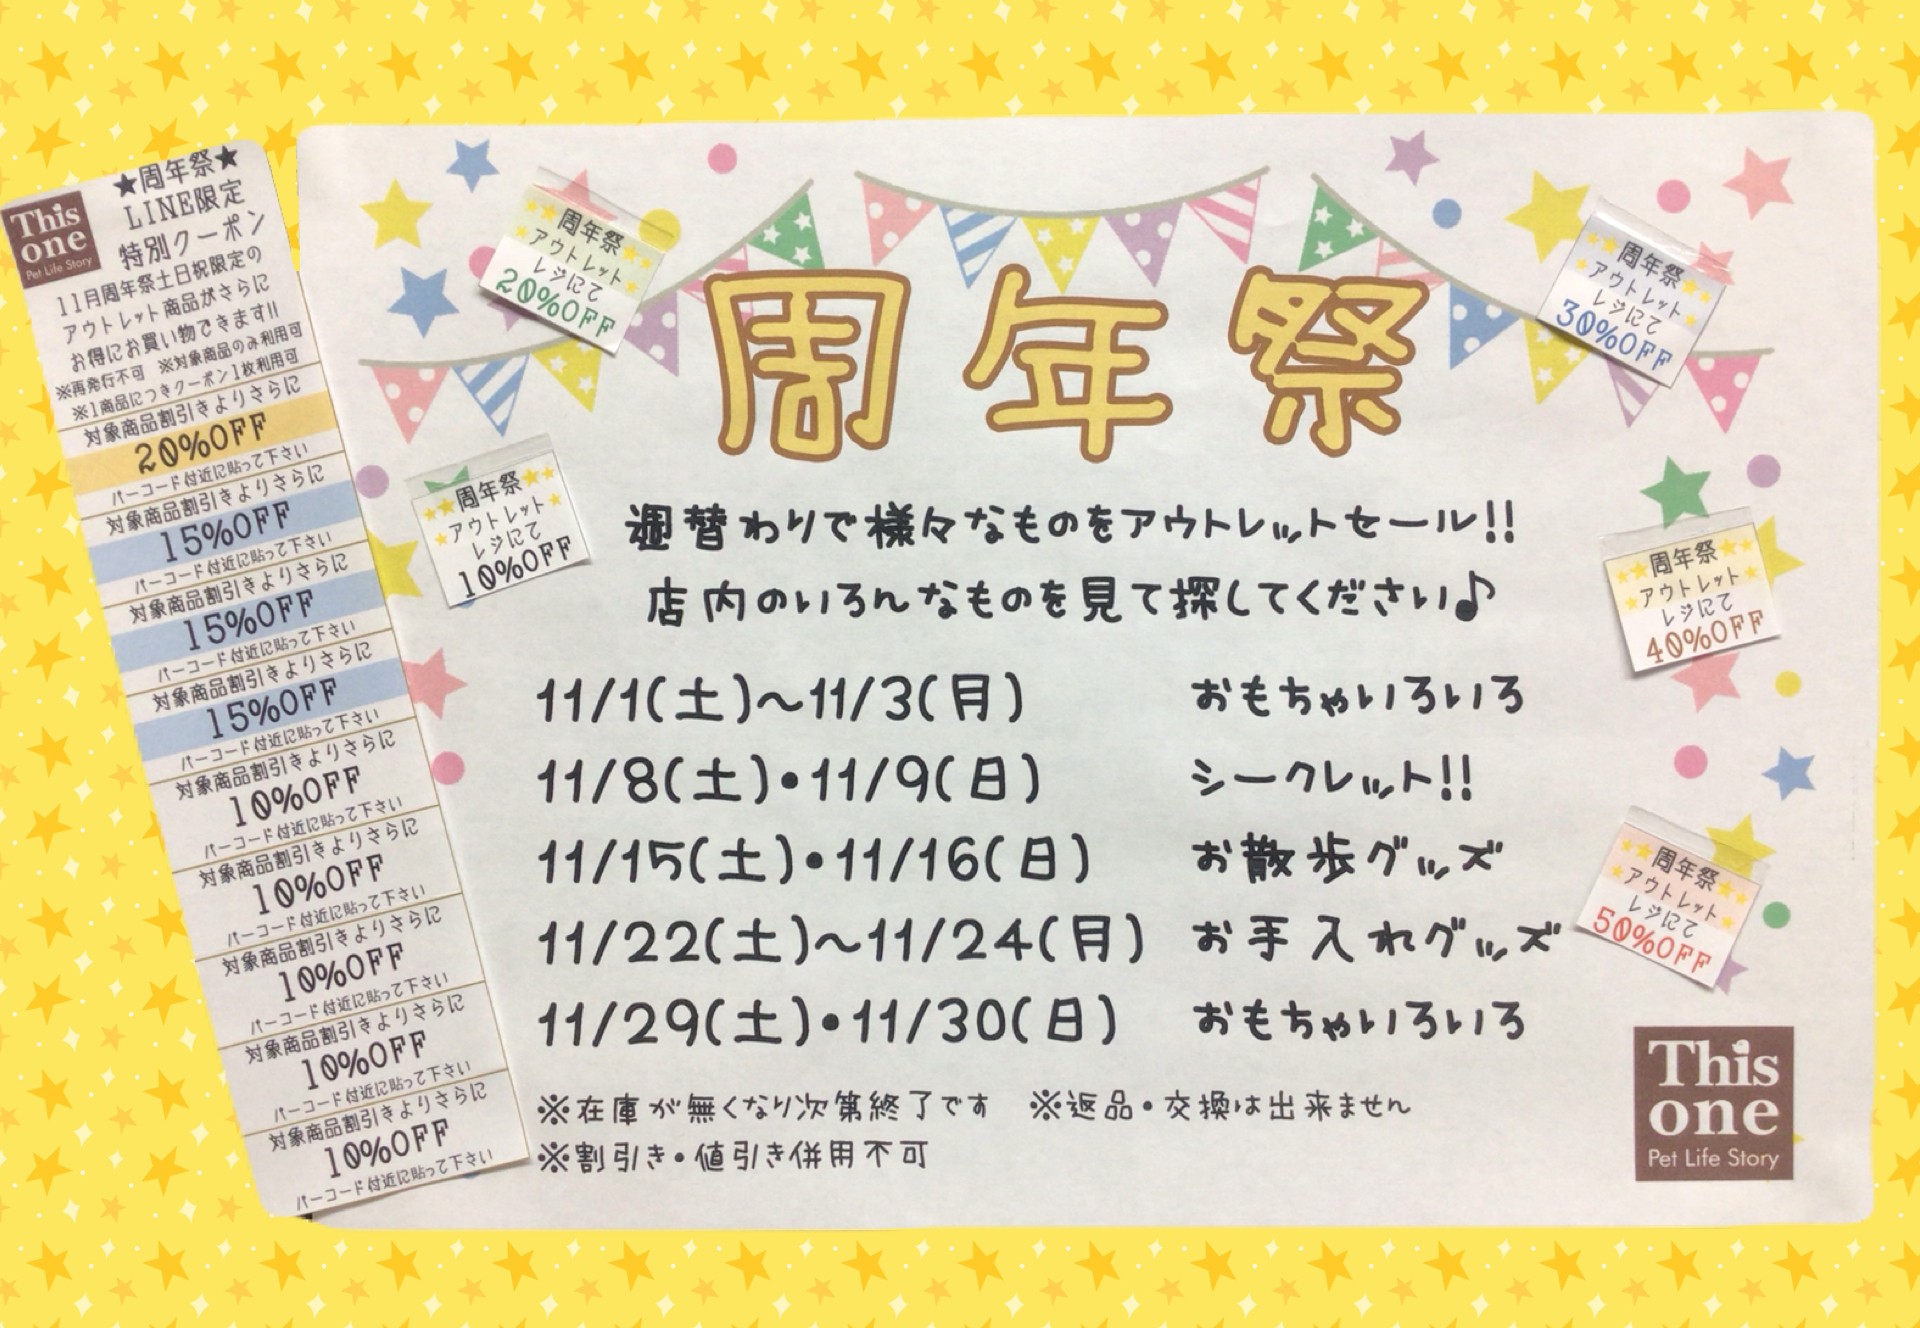 ★周年祭★
LINE限定
特別クーポン
This
one
Pet Life Story
11月周年祭土日祝限定の
アウトレット商品がさらに
お得にお買い物できます!!
※再発行不可 ※対象商品のみ利用可
※1商品につきクーポン1枚利用可
対象商品割引きよりさらに
20%OFF
バーコード付近に貼って下さい
対象商品割引きよりさらに
15%OFF
バーコード付近に貼って下さい
対象商品割引きよりさらに
15%OFF
バーコード付近に貼って下さい
対象商品割引きよりさらに
15%OFF
バーコード付近に貼って下さい
対象商品割引きよりさらに
10%OFF
バーコード付近に貼って下さい
対象商品割引きよりさらに
10%OFF
バーコード付近に貼って下さい
対象商品割引きよりさらに
10%OFF
バーコード付近に貼って下さい
対象商品割引きよりさらに
10%OFF
バーコード付近に貼って下さい
対象商品割引きよりさらに
10%OFF
バーコード付近に貼って下さい
周年祭
アウトレット
レジにて
20%OFF
周年祭
アウトレット
レジにて
30%OFF
周年祭
周年祭
アウトレット
レジにて
10%OFF
週替わりで様々なものをアウトレットセール!!
店内のいろんなものを見て探してください♪
周年祭
アウトレット
レジにて
40%OFF
11/1(土)~11/3(月) おもちゃいろいろ
11/8(土)•11/9(日) シークレット!!
11/15(土)•11/16(日) お散歩グッズ
11/22(土)~11/24(月) お手入れグッズ
11/29(土)•11/30(日) おもちゃいろいろ
周年祭
アウトレット
レジにて
50%OFF
※在庫が無くなり次第終了です ※返品・交換は出来ません
※割引き・値引き併用不可
This
one
Pet Life Story